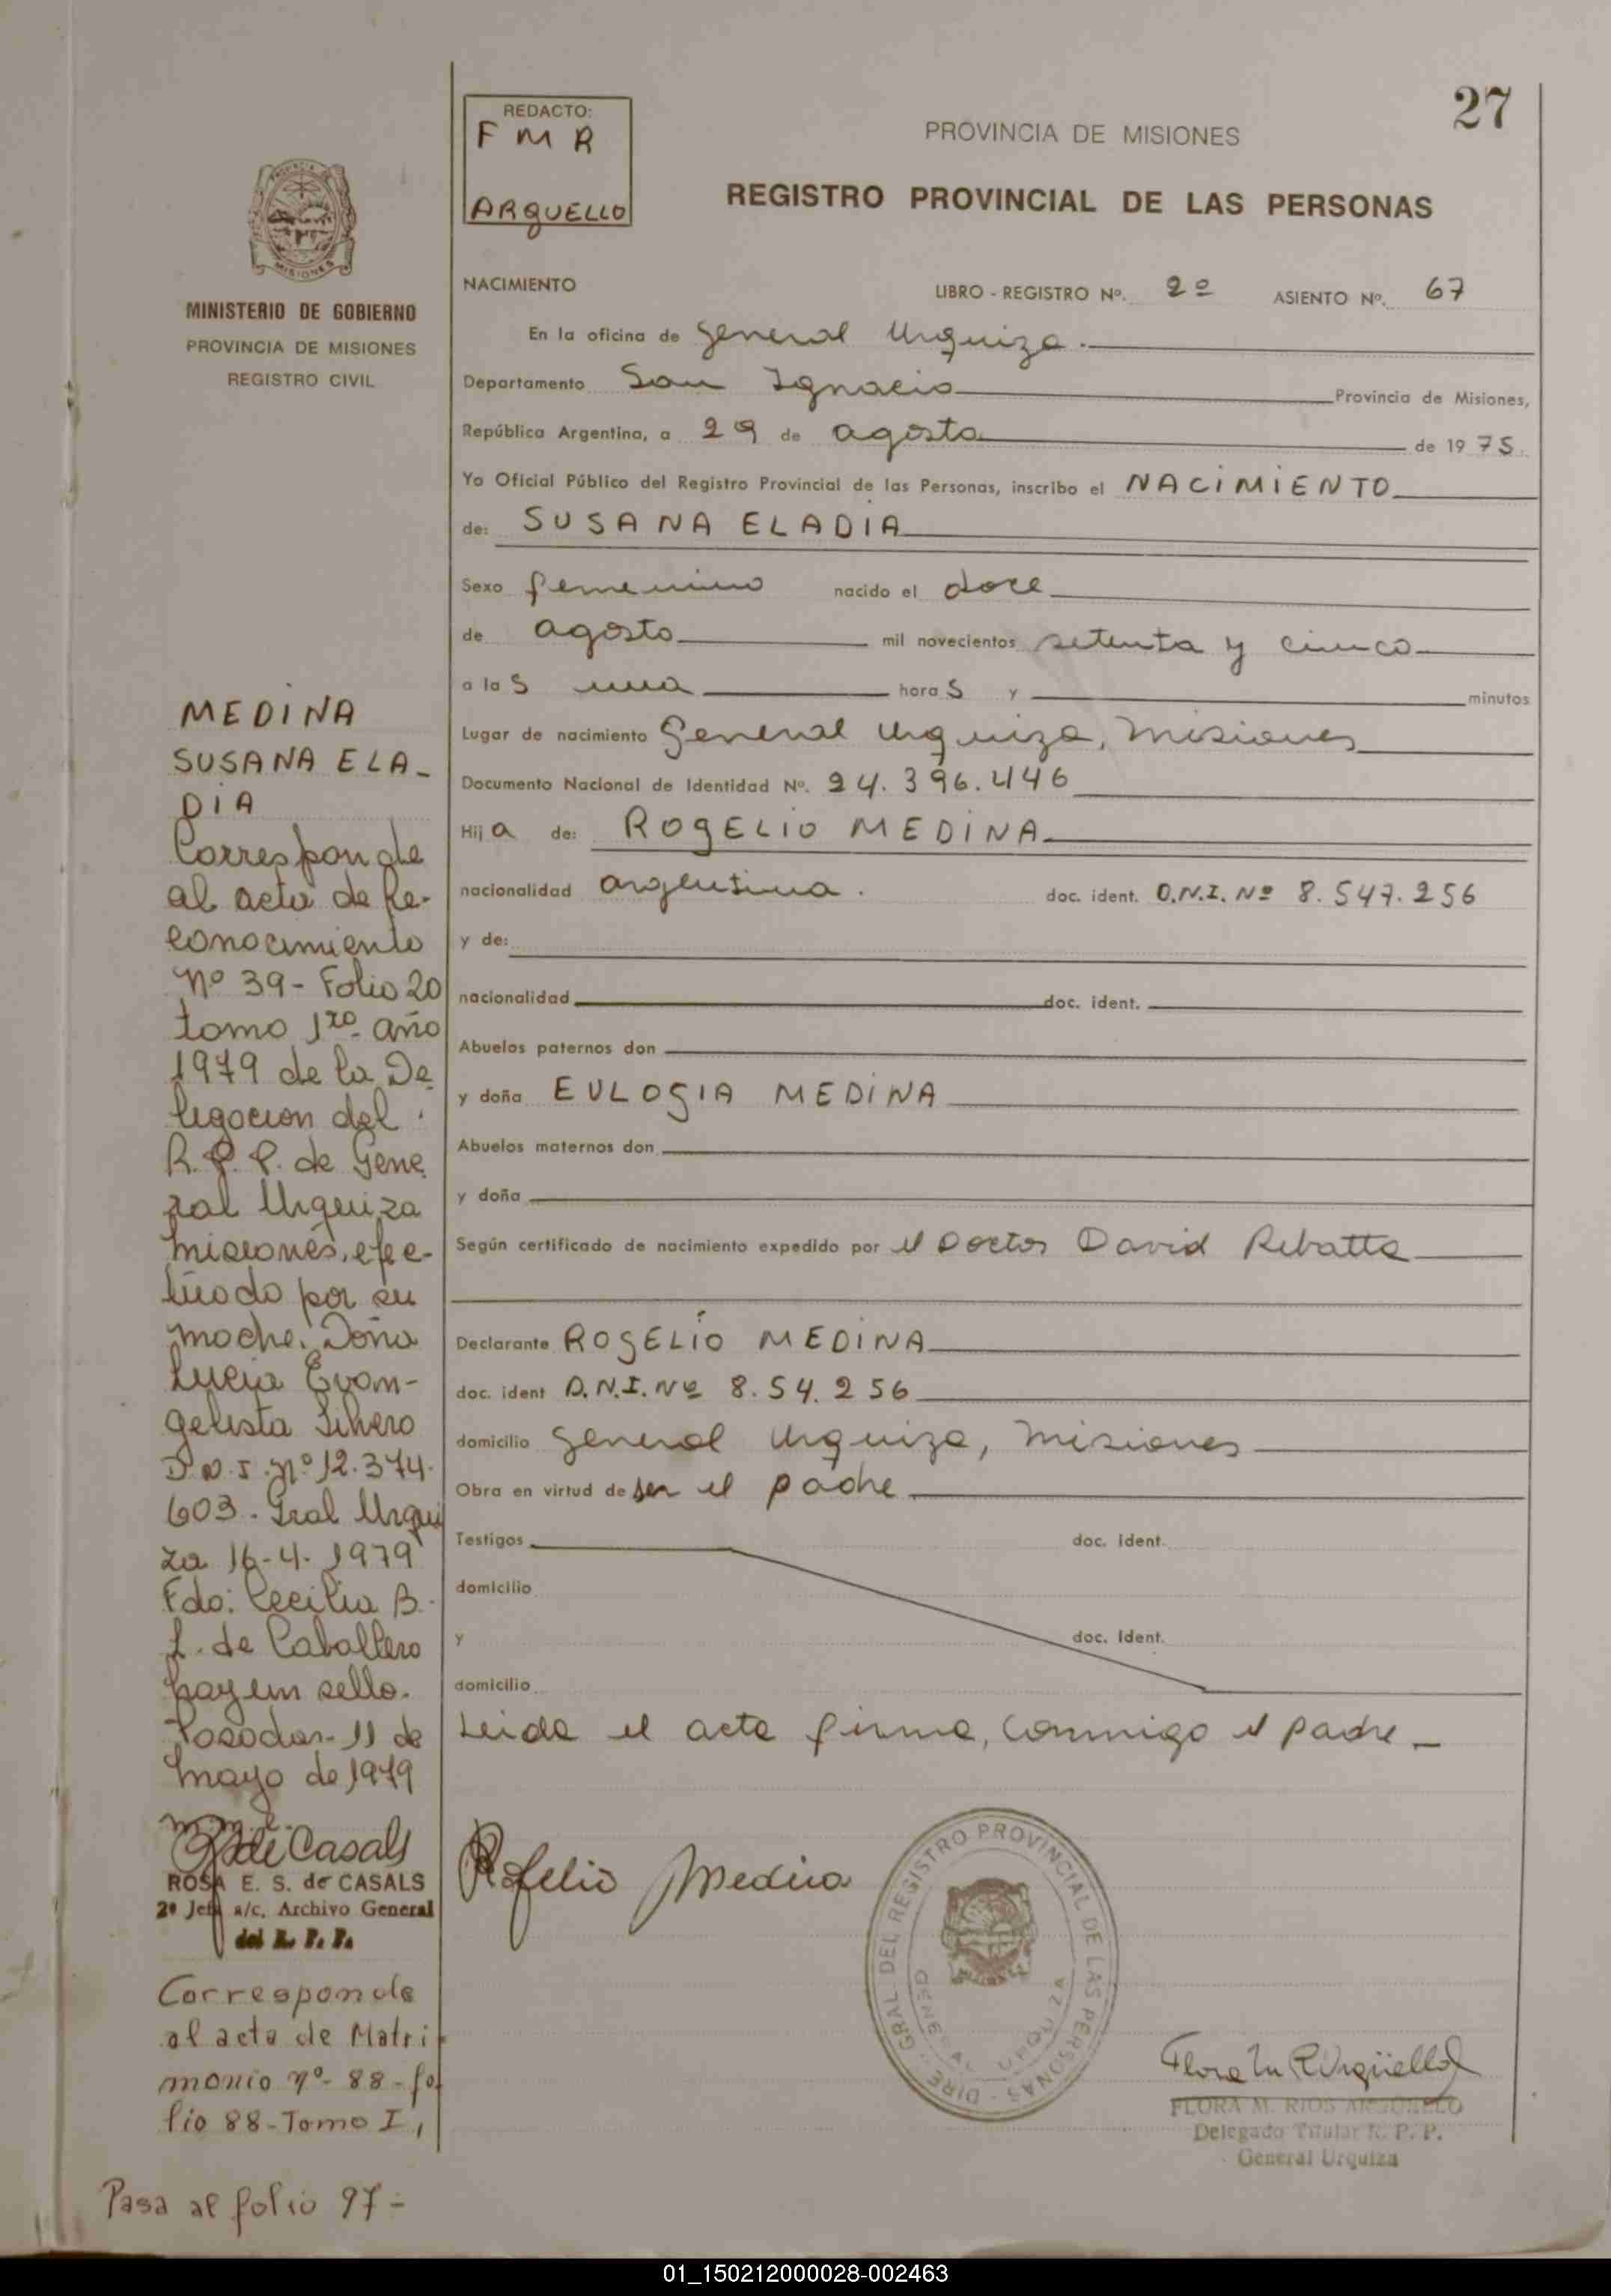 27
REDACTO:
F M R
ARGUELLO
PROVINCIA DE MISIONES
REGISTRO PROVINCIAL DE LAS PERSONAS
MISIONES
MINISTERIO DE GOBIERNO
PROVINCIA DE MISIONES
REGISTRO CIVIL
NACIMIENTO LIBRO - REGISTRO Nº. 2º ASIENTO Nº. 67
En la oficina de General Urquiza.
Departamento San Ignacio Provincia de Misiones,
República Argentina, a 29 de agosto de 1975.
Yo Oficial Público del Registro Provincial de las Personas, inscribo el NACIMIENTO
de: SUSANA ELADIA
Sexo femenino nacido el doce
de agosto mil novecientos setenta y cinco
a las una horas y minutos
Lugar de nacimiento General Urquiza, Misiones
Documento Nacional de Identidad Nº. 24.396.446
Hija de: ROGELIO MEDINA
nacionalidad argentina. doc. ident. D.N.I. Nº 8.547.256
y de:
nacionalidad doc. ident.
Abuelos paternos don
y doña EULOGIA MEDINA
Abuelos maternos don
y doña
Según certificado de nacimiento expedido por el Doctor David Rebatta
Declarante ROGELIO MEDINA
doc. ident D.N.I. Nº 8.54.256
domicilio General Urquiza, Misiones
Obra en virtud de ser el padre
Testigos doc. ident.
domicilio
y doc. ident.
domicilio
Leida el acta firma, conmigo el padre
Rogelio Medina
DIRE. GRAL. DEL REGISTRO PROVINCIAL DE LAS PERSONAS
GENERAL URQUIZA
Flora M R Argüello
FLORA M. RIOS ARGUELLO
Delegado Titular R. P. P.
General Urquiza
MEDINA
SUSANA ELA-
DIA
Corresponde
al acta de Re-
conocimiento
Nº 39 - Folio 20
tomo 1ro año
1979 de la De
legacion del
R. P. P. de Gene
ral Urquiza
Misiones, efec-
tuado por su
madre. Doña
Lucia Evan-
gelista
D.N.I. Nº 12.374.
603. Gral Urqui
za 16-4-1979
Fdo: Cecilia B.
L. de Caballero
hay un sello.
Posadas 11 de
mayo de 1979
m.m.l.
R de Casals
ROSA E. S. de CASALS
2º Jefe a/c. Archivo General
del R. P. P.
Corresponde
al acta de Matri
monio nº- 88-fo
lio 88-Tomo I,
Pasa al folio 97-
01_150212000028-002463